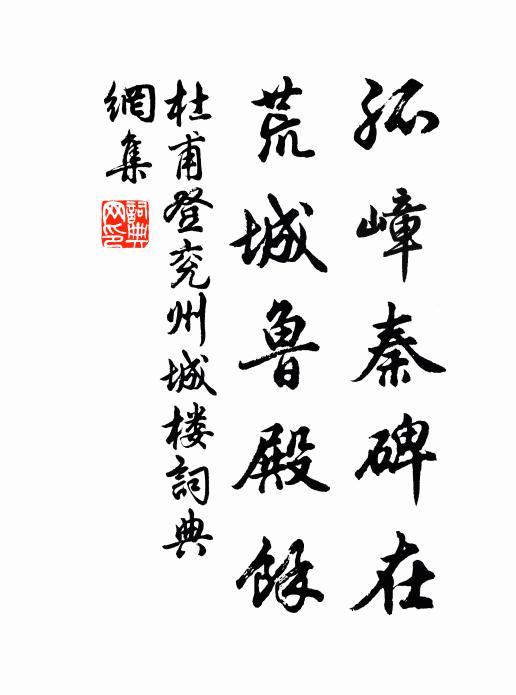 孤嶂秦碑在
荒城鲁殿餘
杜甫登兖州城楼詞典
網集
詞典網印